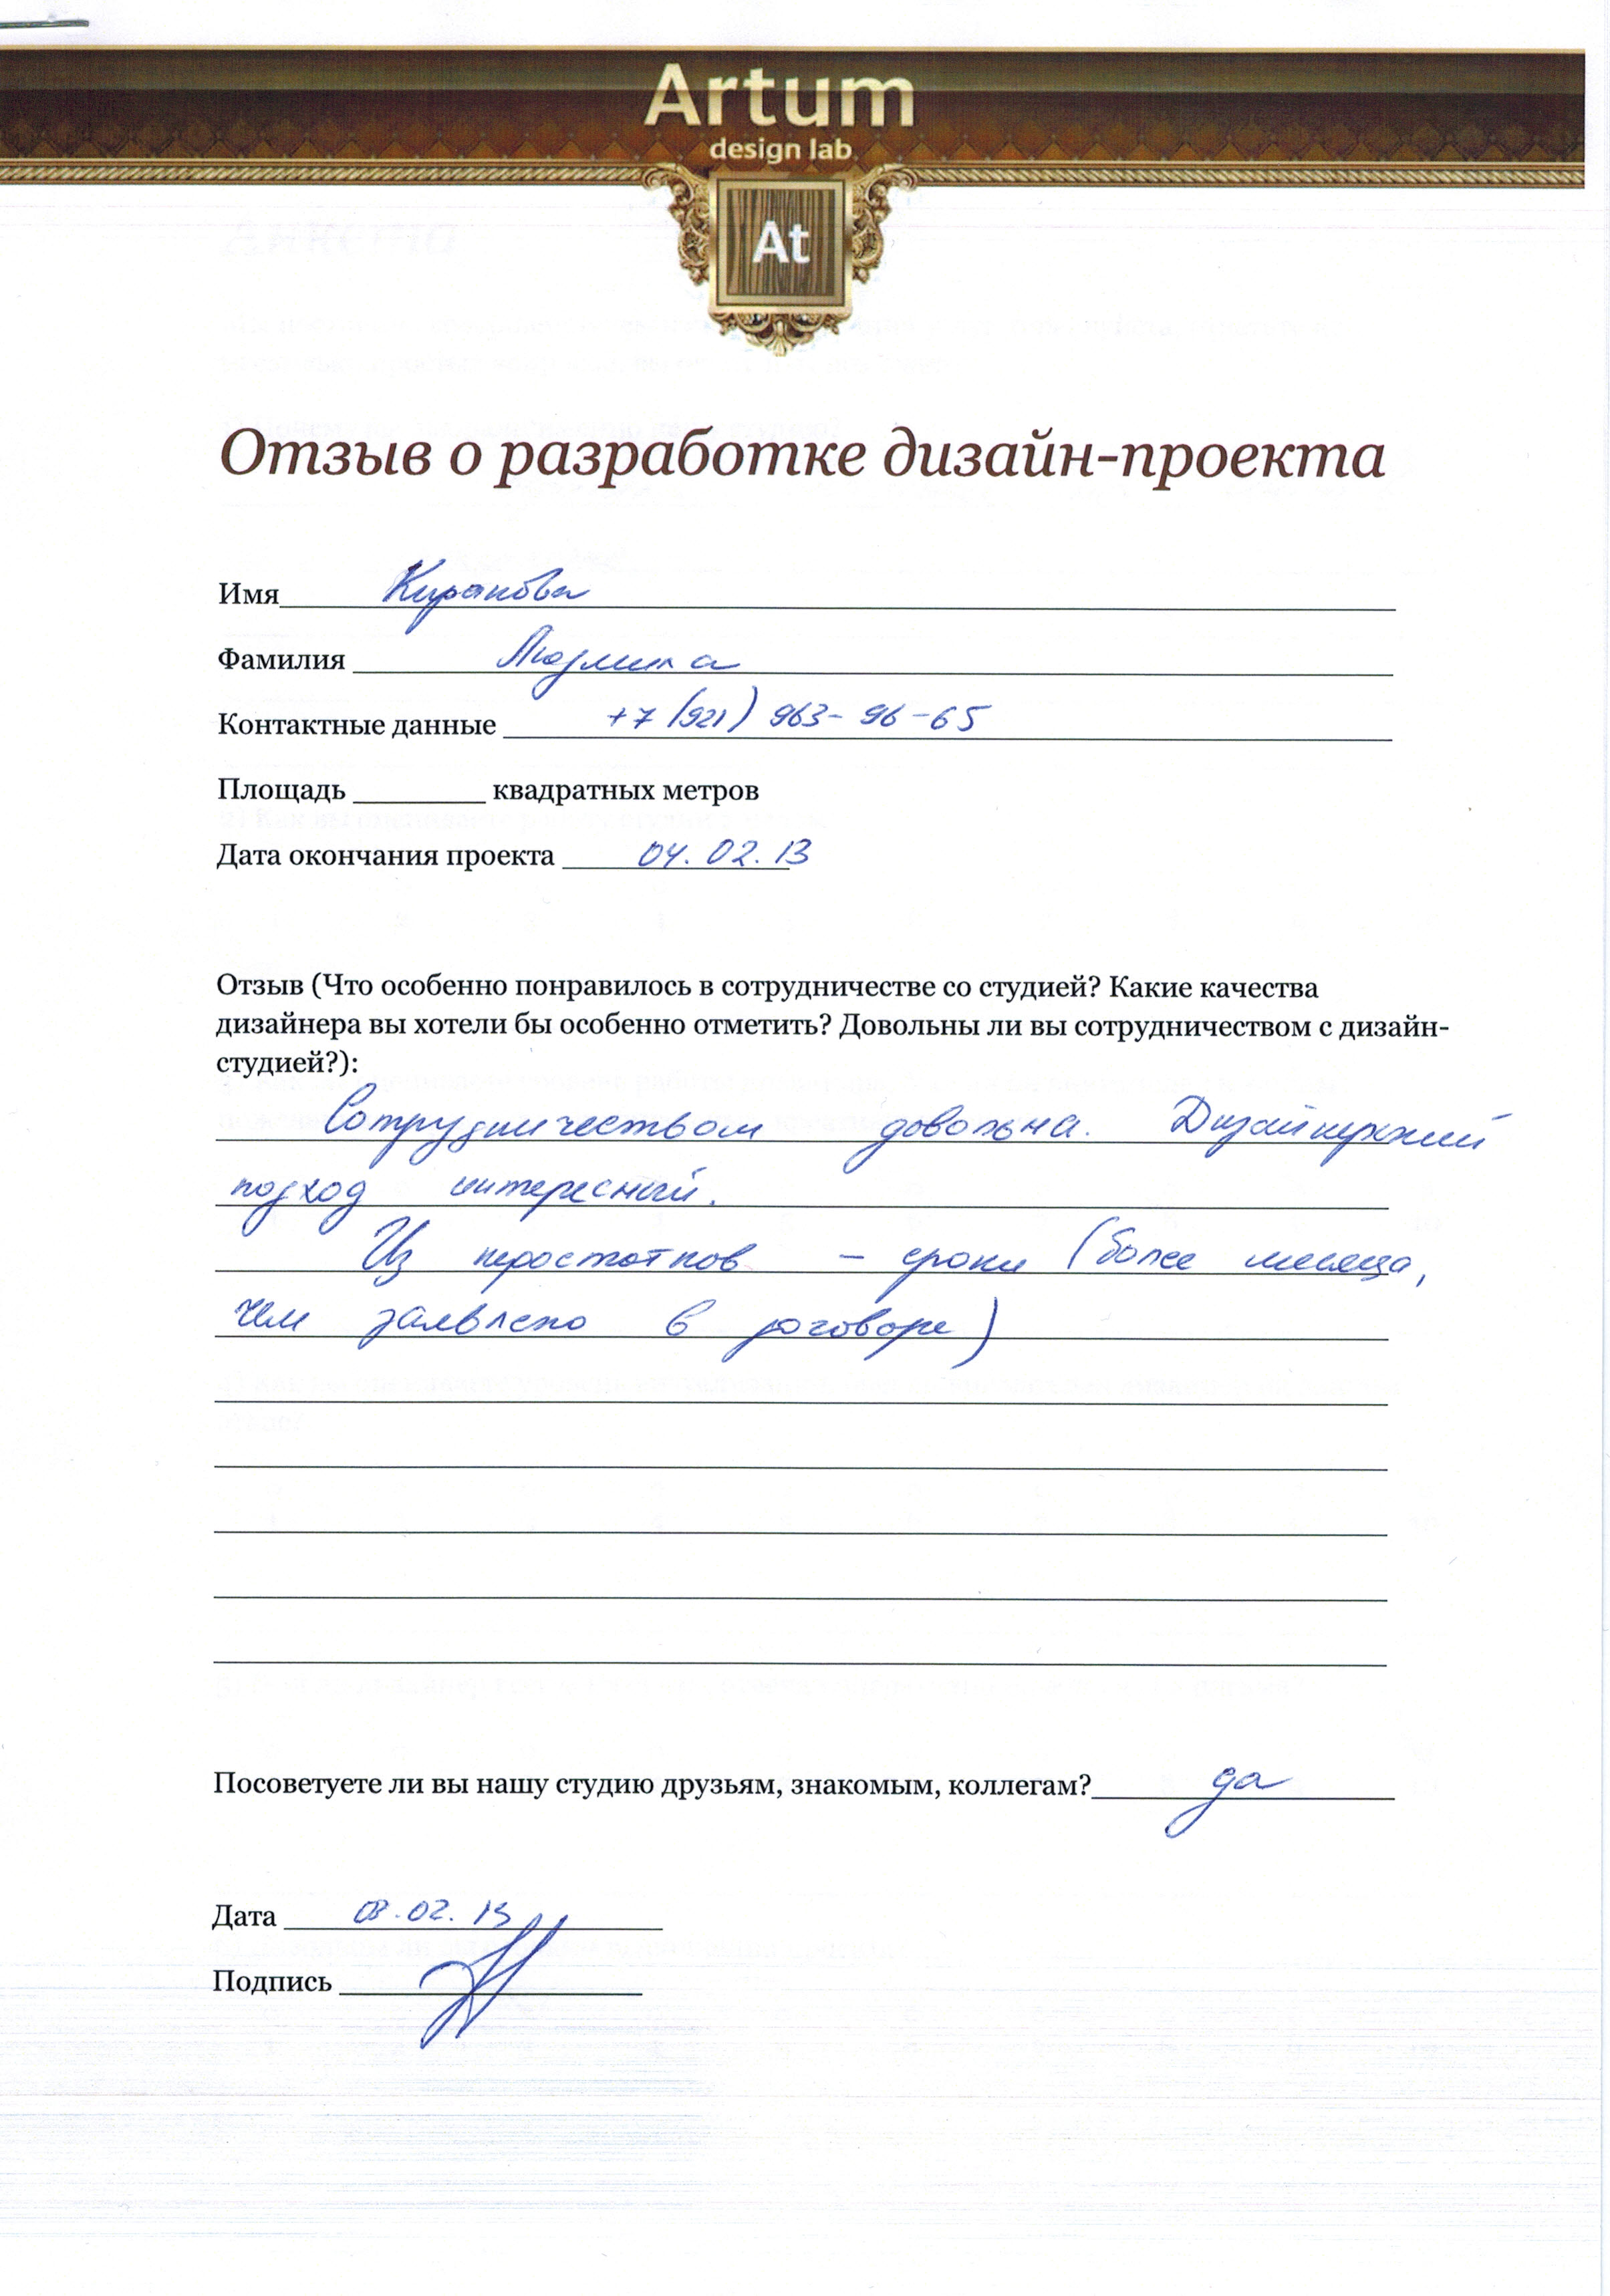 Artum
design lab
At
Отзыв о разработке дизайн-проекта
Имя
Фамилия Людмила
Контактные данные +7 (921) 963-96-65
Площадь ________ квадратных метров
Дата окончания проекта 04.02.13
Отзыв (Что особенно понравилось в сотрудничестве со студией? Какие качества
дизайнера вы хотели бы особенно отметить? Довольны ли вы сотрудничеством с дизайн-
студией?):
Сотрудничеством довольна. Дизайнерский
подход интересный.
Из недостатков – сроки (более месяца,
чем заявлено в договоре)
Посоветуете ли вы нашу студию друзьям, знакомым, коллегам? да
Дата 08.02.13
Подпись